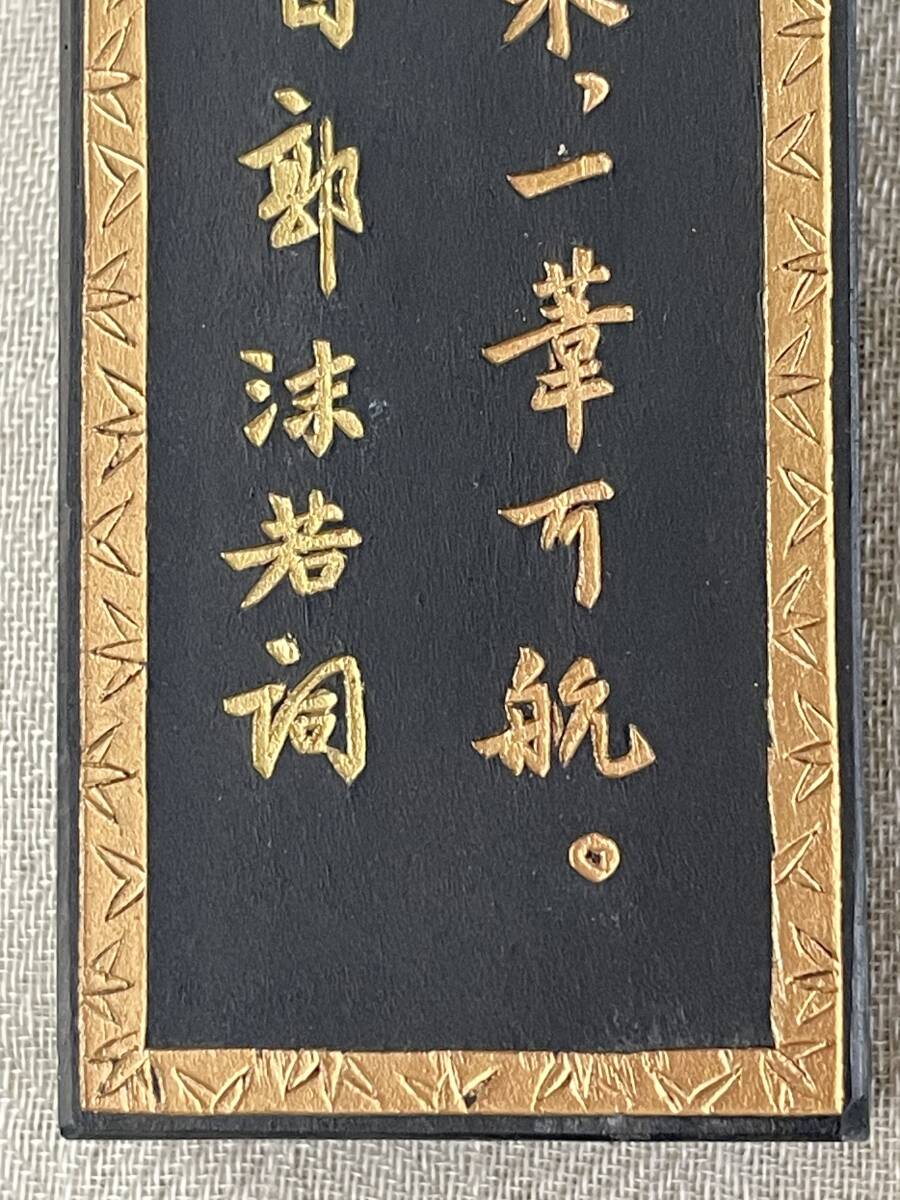 ，一葦可航。
郭沫若词